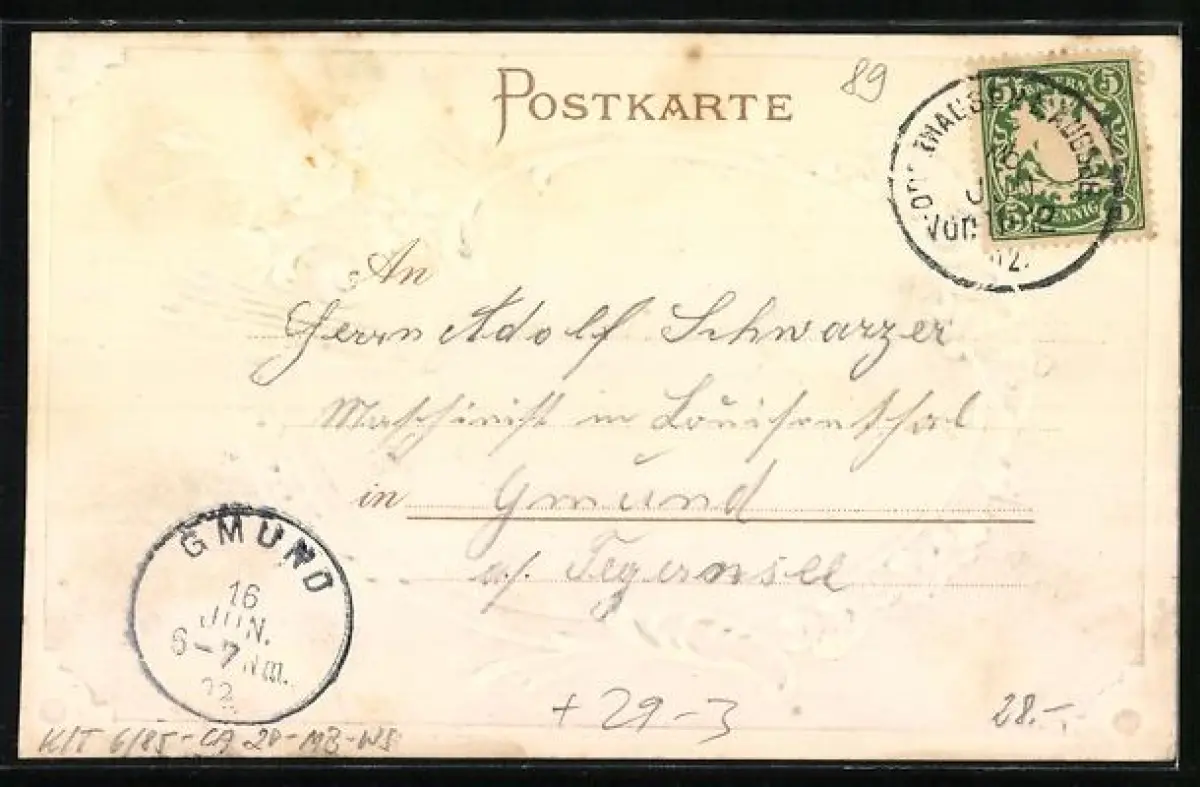 POSTKARTE
89
BAYERN
5 5
5 PFENNIG 5
VOR
02.
An
Herrn Adolf Schwarzer
Maschinist in Louisenthal
in Gmünd
a/. Tegernsee
GMUND
16
JUN.
6-7 NM.
+ 29-3
28.-
K/T 6/85-CA 20-MB-WS